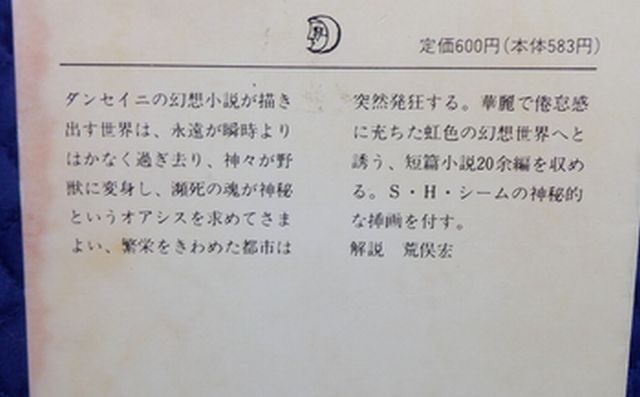 定価600円(本体583円)
ダンセイニの幻想小説が描き
出す世界は、永遠が瞬時より
はかなく過ぎ去り、神々が野
獣に変身し、瀕死の魂が神秘
というオアシスを求めてさま
よい、繁栄をきわめた都市は
突然発狂する。華麗で倦怠感
に充ちた虹色の幻想世界へと
誘う、短篇小説20余編を収め
る。S・H・シームの神秘的
な挿画を付す。
解説 荒俣宏